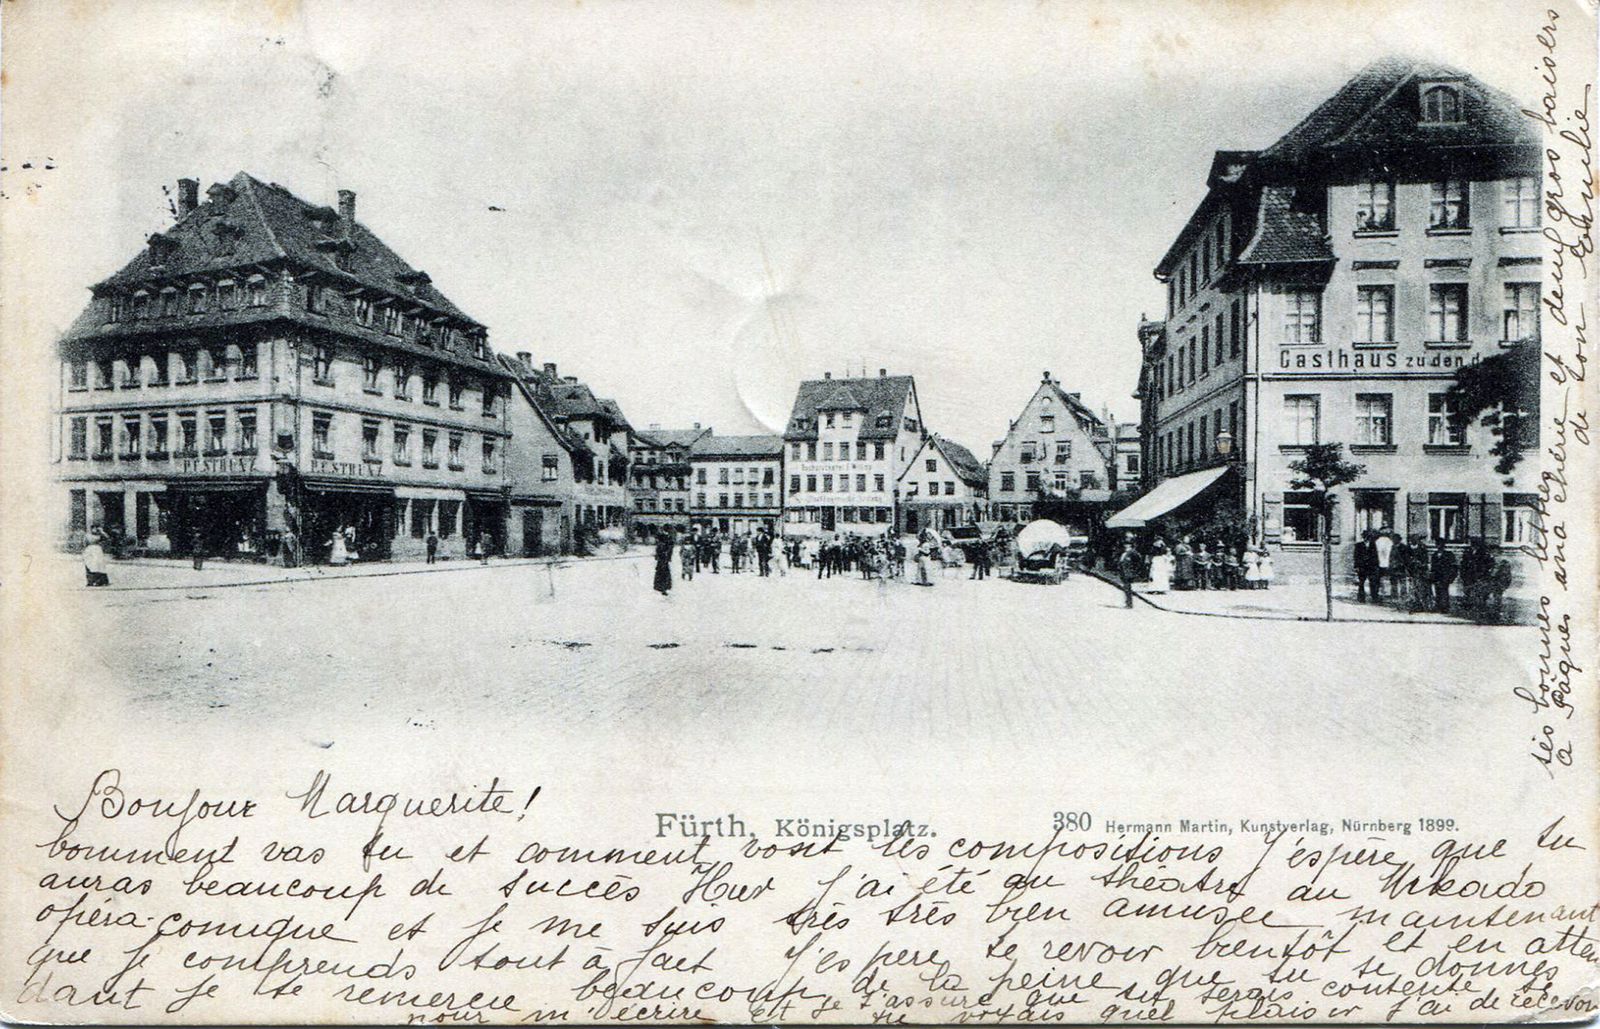 P. STRENZ
P. STRENZ
Gasthaus zu den d
Fürth, Königsplatz.
380 Hermann Martin, Kunstverlag, Nürnberg 1899.
Bonjour Marguerite!
comment vas tu et comment vont les compositions J'espère que tu
auras beaucoup de succès Hier j'ai été au théatre au Mikado
opéra-comique et je me suis très très bien amusée maintenant
que je comprends tout à fait J'espere te revoir bientôt Et en atten
dant je te remercie beaucoup de la peine que tu te donnes
pour m'écrire Et je t'assure que tu serais contente si
tu voyais quel plaisir j'ai de recevoir
tes bonnes lettres
à Pâques ma chérie et deux gros baisers
de ton Emilie